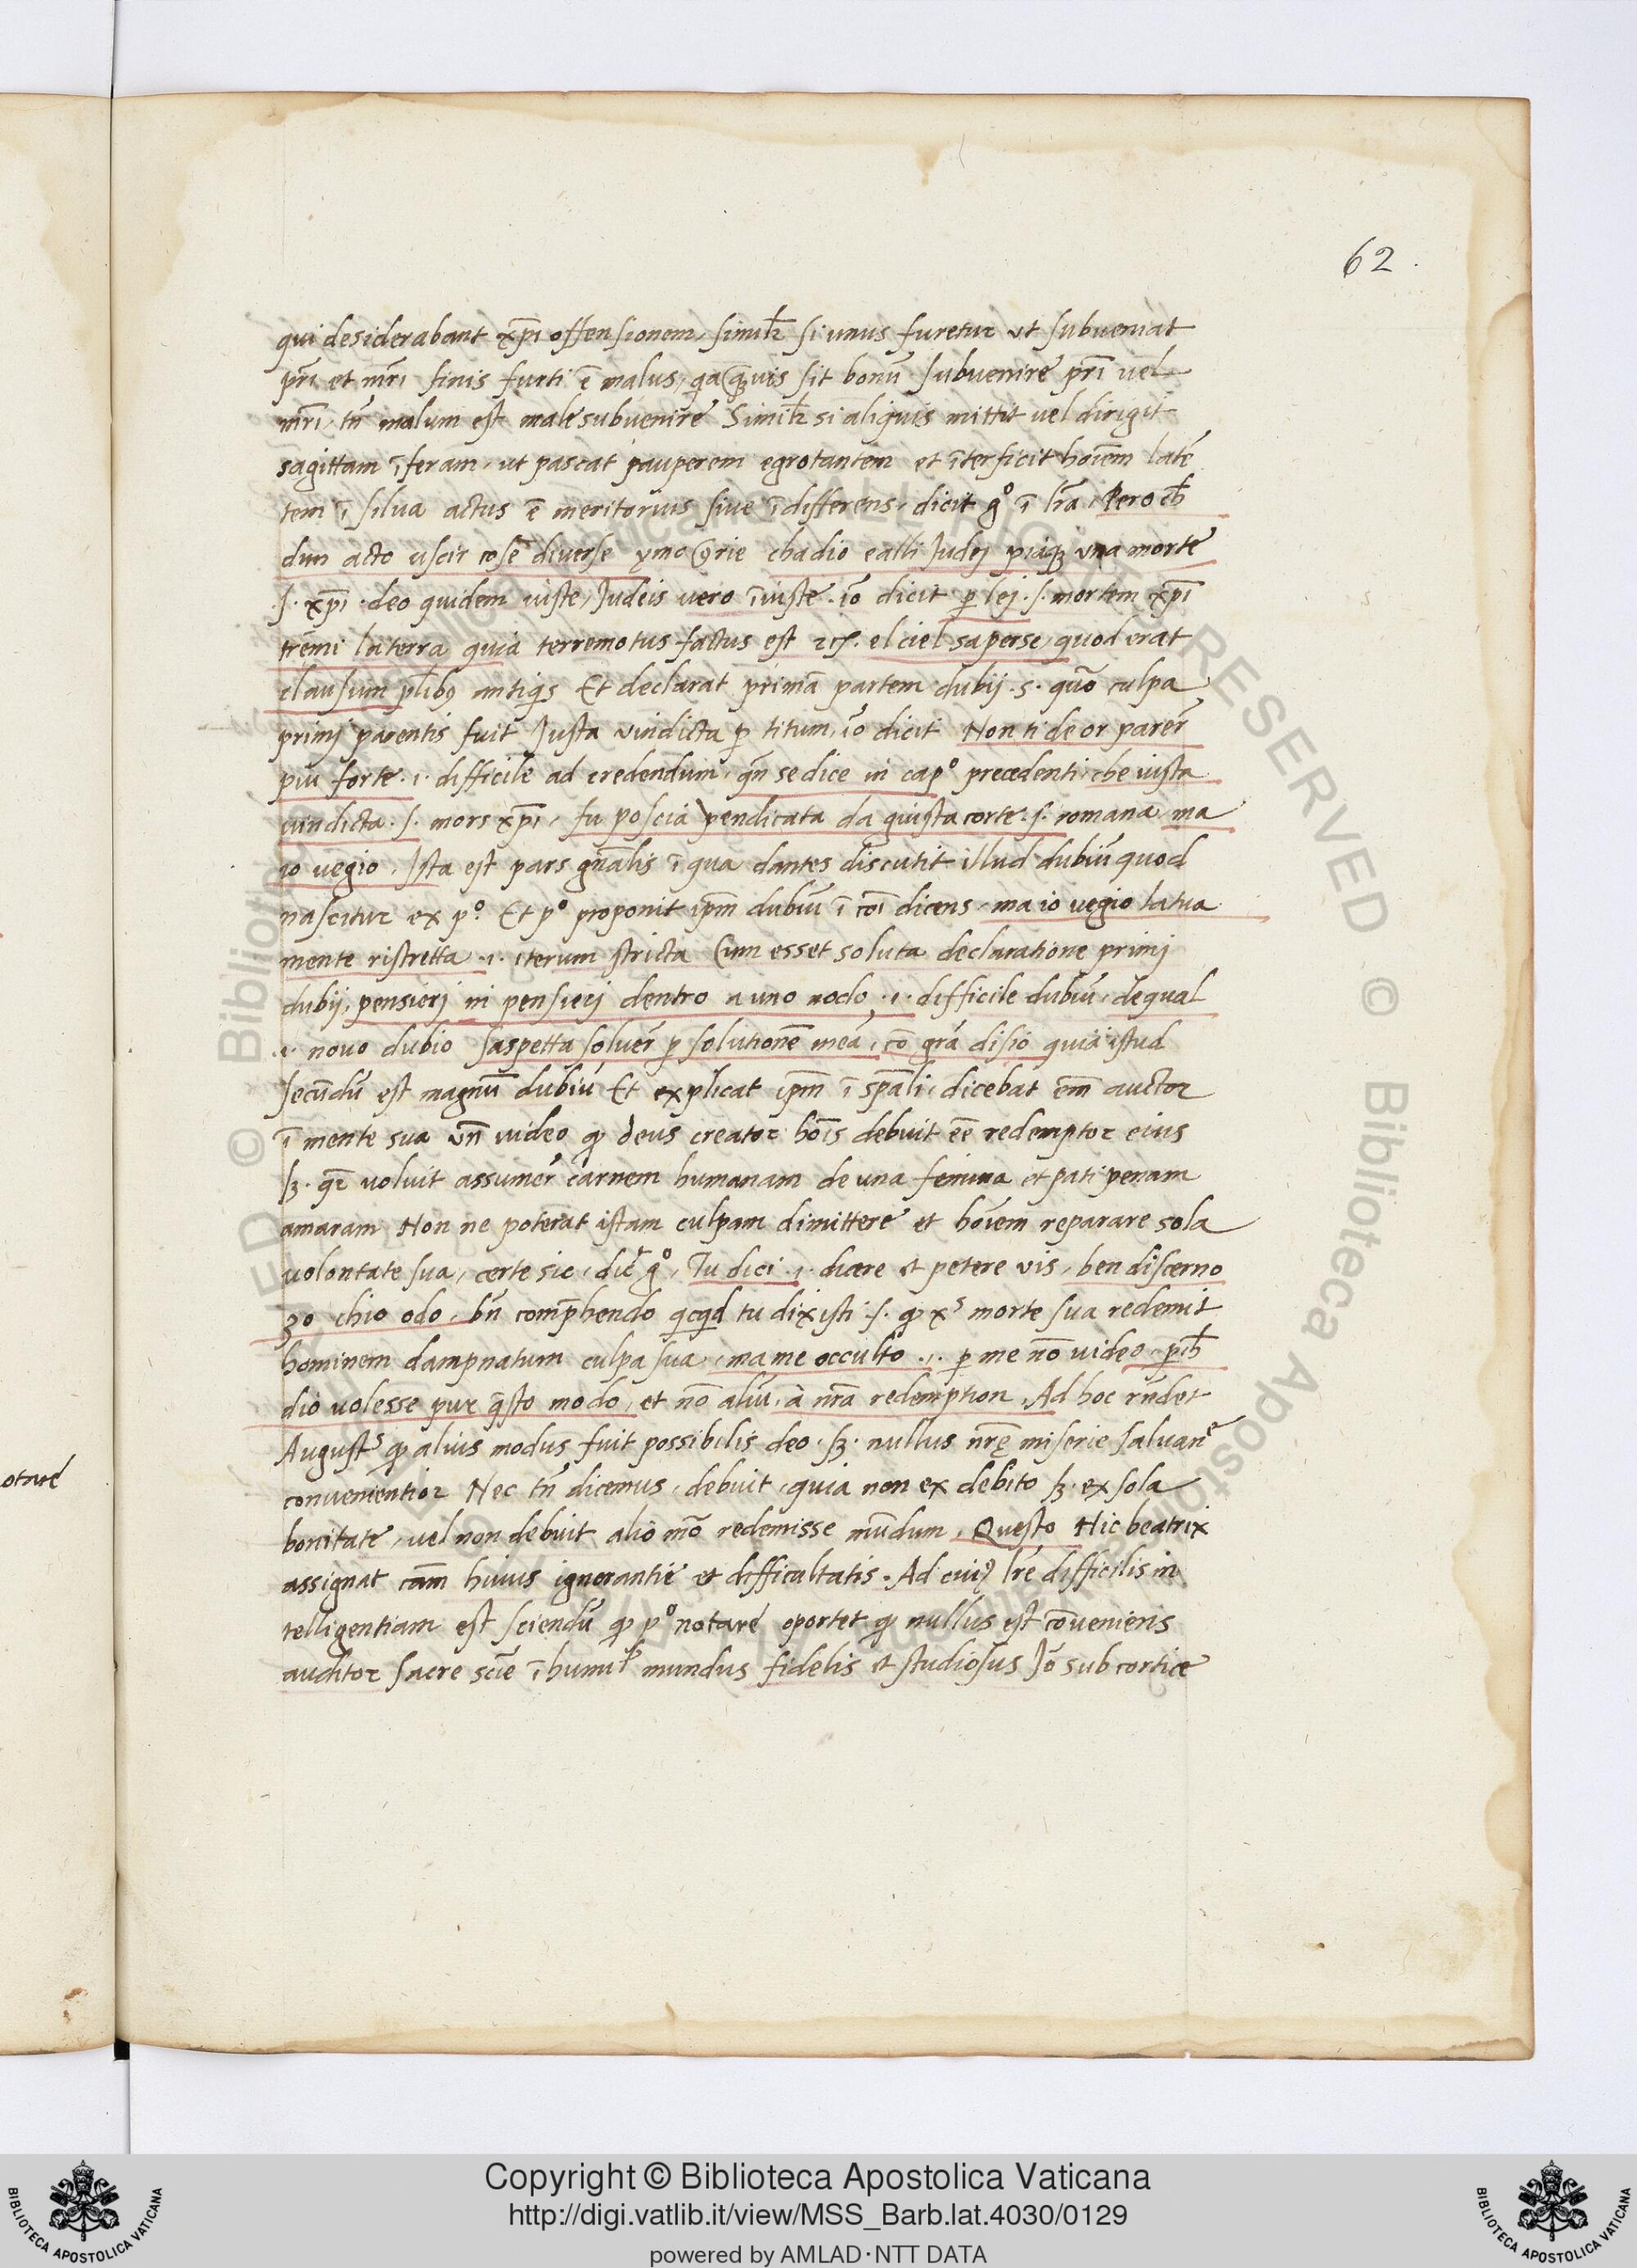 62.
qui desiderabant xp̄i offensionem, simil'r si unus furetur ut subueniat
pr̄i et mr̄i finis furti ē malus, q̄a q̄uis sit bonū subuenire pr̄i uel
mr̄i, tn̄ malum est male subuenire Simil'r si aliquis mittit uel dirigit
sagittam ī feram, ut pascat pauperem egrotantem et īterficit hoīem latē
tem ī silua actus ē meritorius siue īdifferens, dicit gͦ ī lr̄a, Pero ch̄
dun acto uscir cose diuerse ymo 9rie chadio ealli Judej piaq; una morte
.s. xp̄i .deo quidem iuste, Judeis uero īiuste .iō dicit p̱ lej .s. mortem xp̄i
tremi la terra quia terremotus factus est 2c. el ciel saperse, quod erat
clausum pl̄ib9 antiq̄s Et declarat primā partem dubij .s. quō culpa
primj parentis fuit Justa uindicta p̱ titum, iō dicit Non ti de or parer̄
piu forte .i. difficile ad credendum, qn̄ se dice in capͦ precedenti, che iusta
uindicta .s. mors xp̄i, fu poscia pendicata da giusta corte .s. romana, ma
io uegio, Ista est pars gn̄alis ī qua dantes discutit illud dubiū quod
nascitur ex pͦ. Et pͦ proponit ip̄m dubiū ī cōi dicens, ma io uegio la tua
mente ristretta .i. iterum stricta Cum esset soluta declaratione primj
dubij, pensierj in pensierj dentro a uno nodo .i. difficile dubiū, de qual
.i. nouo dubio saspetta soluer̄ p̱ solutionē meā, cō grā disio quia istud
secūdū est magnū dubiū Et explicat ip̄m ī sp̄ali, dicebat em̄ auctor
ī mente sua vn̄ uideo qp deus creator hoīs debuit eē redemptor eius
sȝ. qr̄ uoluit assumer̄ carnem humanam de una femina et pati penam
amaram Non ne poterat istam culpam dimittere et hoīem reparare sola
uolontate sua, certe sic, dic̄ gͦ, Tu dici .i. dicere et petere vis, ben discerno
zo chio odo, bn̄ comp̄hendo qcqd tu dixisti .s. qp xˢ morte sua redemit
hominem dampnatum culpa sua, ma me occulto .i. p̱ me nō uideo, p̱ch̄
dio uolesse pur q̄sto modo, et nō aliū, à nr̄a redemption, Ad hoc rn̄det
Augustˢ qp alius modus fuit possibilis deo, sȝ. nullus nr̄ę miserie saluanͤ
conuenientior Nec tn̄ dicemus, debuit, quia non ex debito sȝ. ex sola
bonitate, uel non debuit alio mō redemisse mūdum, Questo Hic beatrix
assignat cām huius ignorantie et difficultatis. Ad cui9 lr̄e difficilis in
telligentiam est sciendū qp pͦ notare oportet qp nullus est cōueniens
auditor sacre scīe ī humil' mundus fidelis et studiosus Jō sub cortice
Copyright © Biblioteca Apostolica Vaticana
http://digi.vatlib.it/view/MSS_Barb.lat.4030/0129
powered by AMLAD·NTT DATA